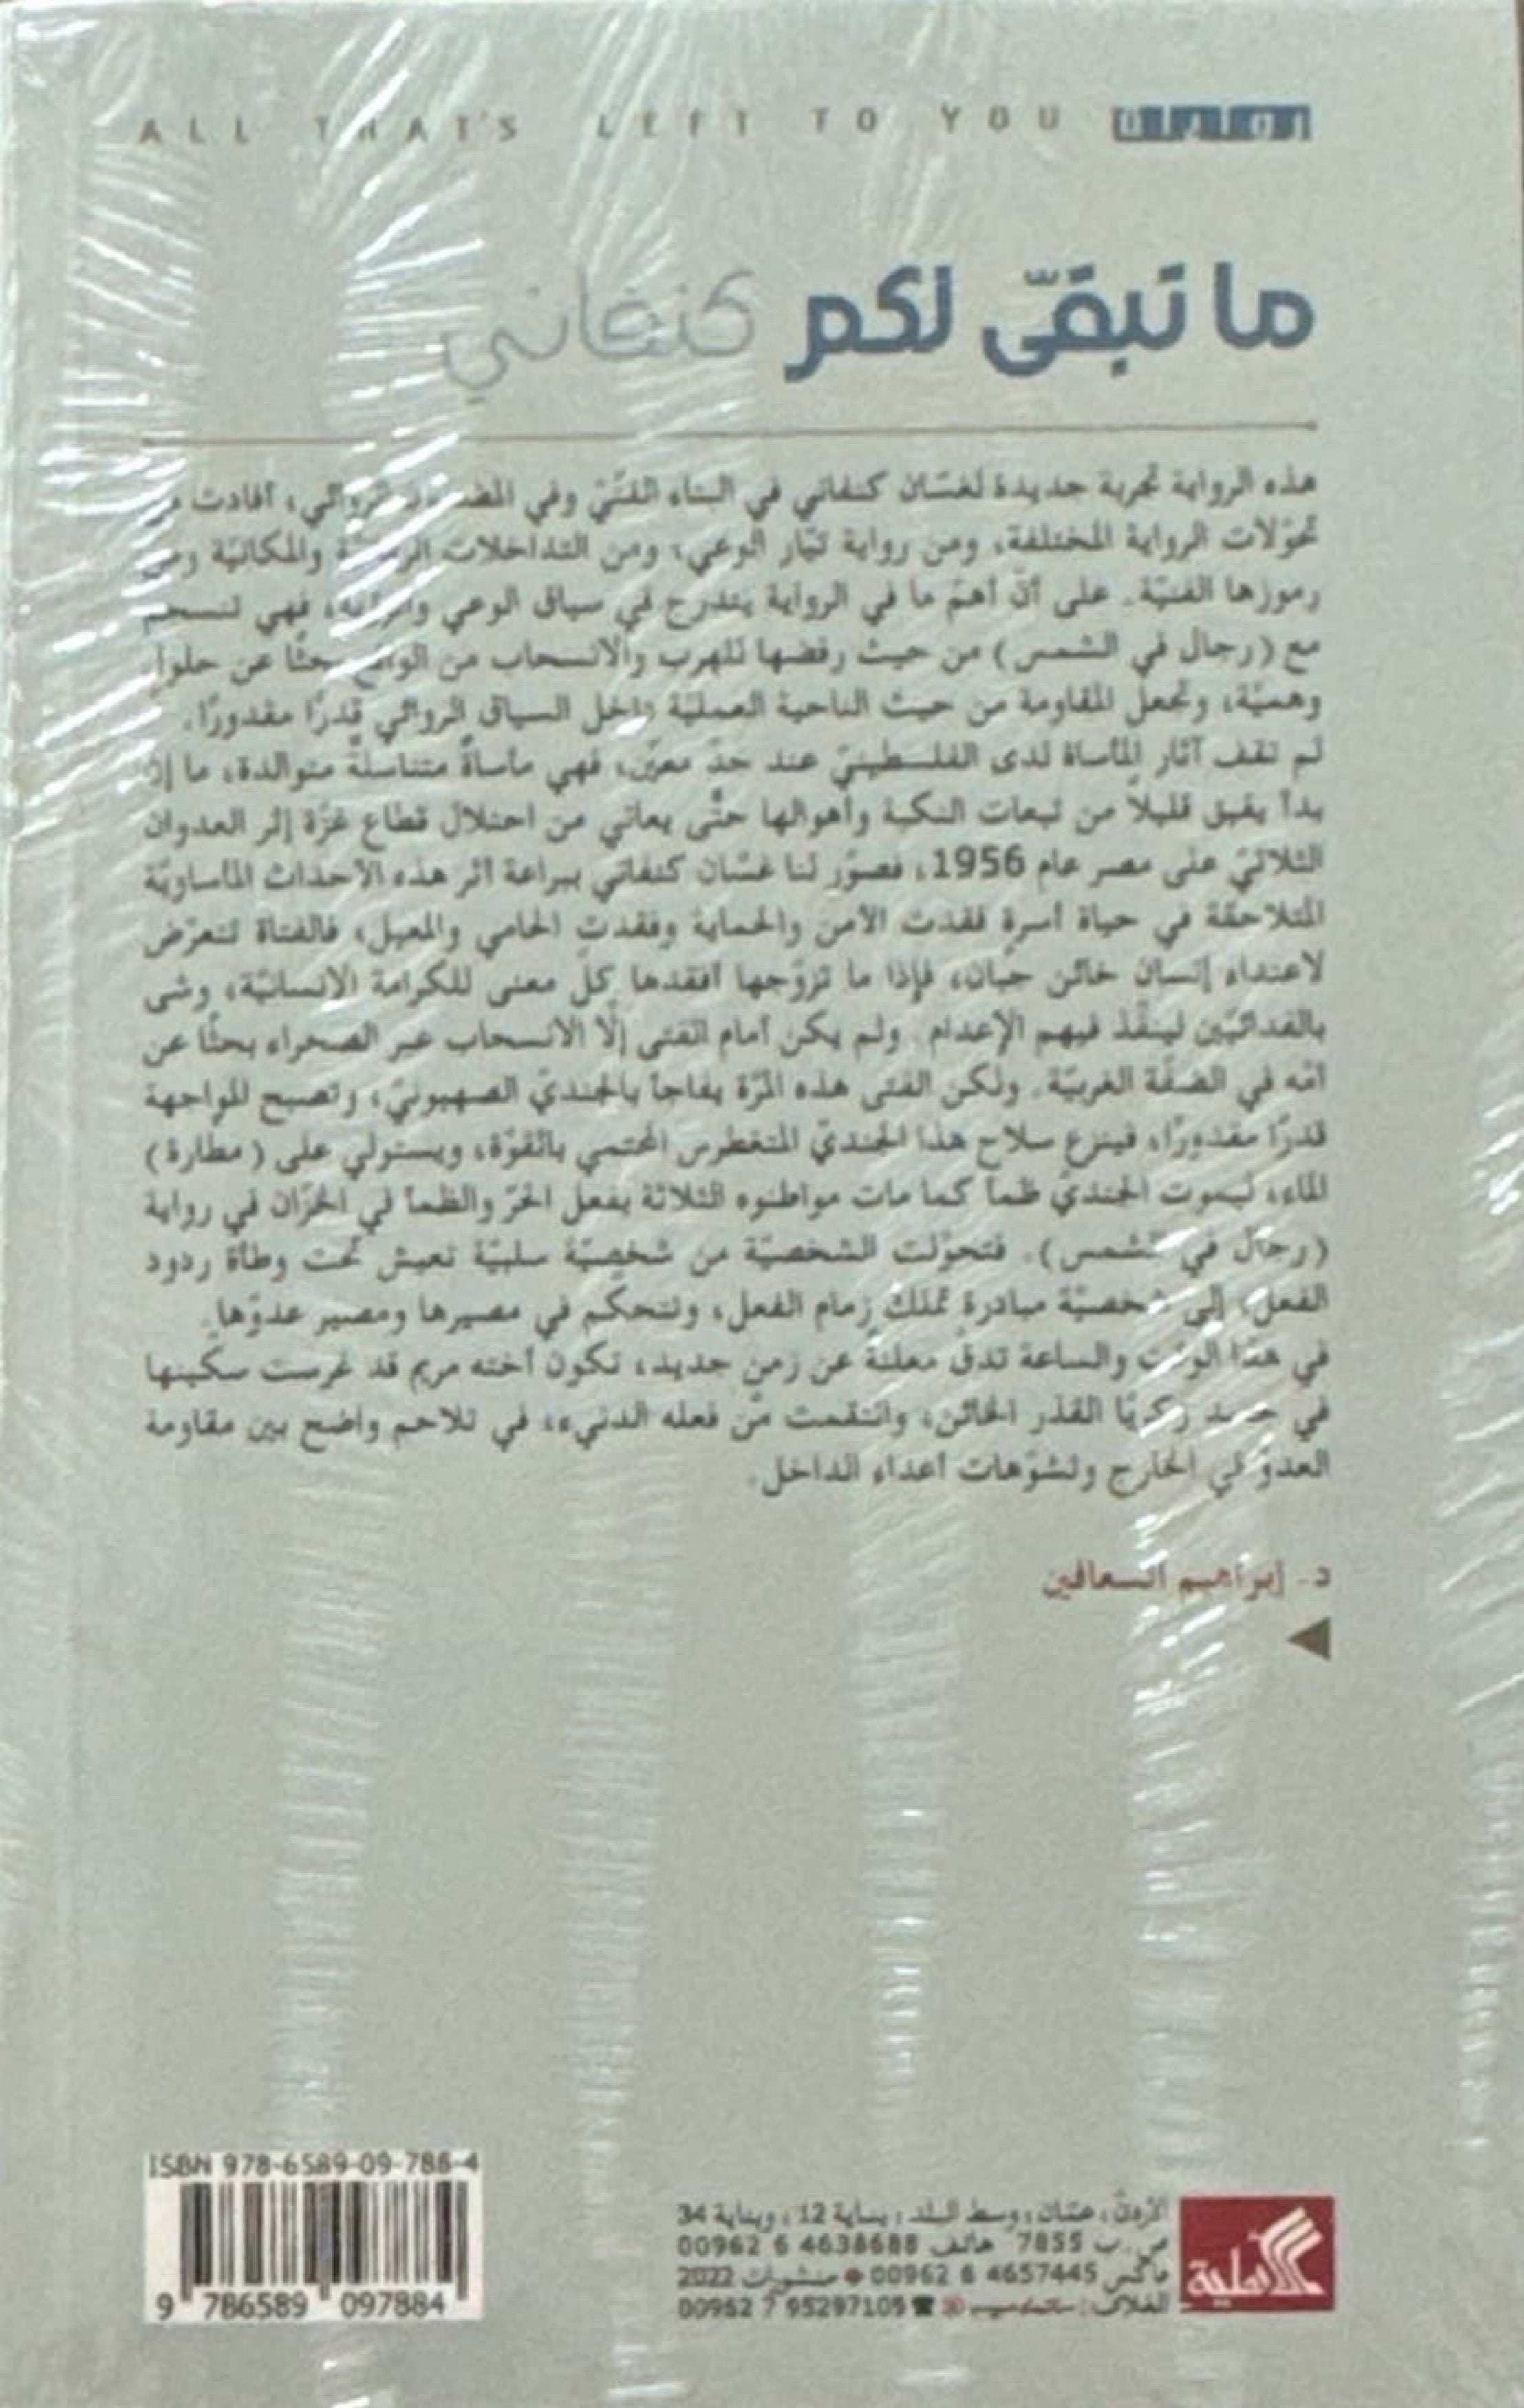 ALL THAT'S LEFT TO YOU
ما تبقّى لكم كنفاني
هذه الرواية تجربة جديدة لغسّان كنفاني في البناء الفنّيّ وفي الروائي، أفادت
تحوّلات الرواية المختلفة، ومن رواية تيّار الوعي، ومن التداخلات والمكانيّة ومن
رموزها الفنيّة. على أنّ أهمّ ما في الرواية يندرج في سياق الوعي فهي تنسجم
مع (رجال في الشمس) من حيث رفضها للهرب والانسحاب من الواقع بحثًا عن حلول
وهميّة، وتجعل المقاومة من حيث الناحية العمليّة داخل السياق الروائي قدرًا مقدورًا.
لم تقف آثار المأساة لدى الفلسطينيّ عند حدّ معيّن، فهي مأساةٌ متناسلةٌ متوالدة، ما إن
بدأ يفيق قليلاً من تبعات النكبة وأهوالها حتّى يعاني من احتلال قطاع غزّة إثر العدوان
الثلاثيّ على مصر عام 1956، فصوّر لنا غسّان كنفاني ببراعة أثر هذه الأحداث المأساويّة
المتلاحقة في حياة أسرة فقدت الأمن والحماية وفقدت الحامي والمعيل، فالفتاة تتعرّض
لاعتداء إنسان خائن جبان، فإذا ما تزوّجها أفقدها كلّ معنى للكرامة الانسانيّة، وشى
بالفدائيّين لينفّذ فيهم الإعدام. ولم يكن أمام الفتى إلّا الانسحاب عبر الصحراء بحثًا عن
أمّه في الضفّة الغربيّة. ولكن الفتى هذه المرّة يفاجأ بالجنديّ الصهيونيّ، وتصبح المواجهة
قدرًا مقدورًا، فينزع سلاح هذا الجنديّ المتغطرس المحتمي بالقوّة، ويستولي على (مطارة)
الماء، ليموت الجنديّ ظمأ كما مات مواطنوه الثلاثة بفعل الحرّ والظمأ في الخزّان في رواية
(رجال في الشمس). فتحوّلت الشخصيّة من شخصيّة سلبيّة تعيش تحت وطأة ردود
الفعل، إلى شخصيّة مبادرة تملك زمام الفعل، وتتحكّم في مصيرها ومصير عدوّها.
في هذا الوقت والساعة تدقّ معلنةً عن زمنٍ جديد، تكون أخته مريم قد غرست سكينها
في جسد زكريّا القذر الخائن، وانتقمت من فعله الدنيء، في تلاحم واضح بين مقاومة
العدوّ في الخارج وتشوّهات أعداء الداخل.
د. إبراهيم السعافين
ISBN 978-6589-09-788-4
9 786589 097884
الأردن، عمّان، وسط البلد، بناية 12، وبناية 34
ص.ب 7855 هاتف 00962 6 4638688
فاكس 00962 6 4657445 منشورات 2022
الغلاف: 00962 7 95297109
الأهلية